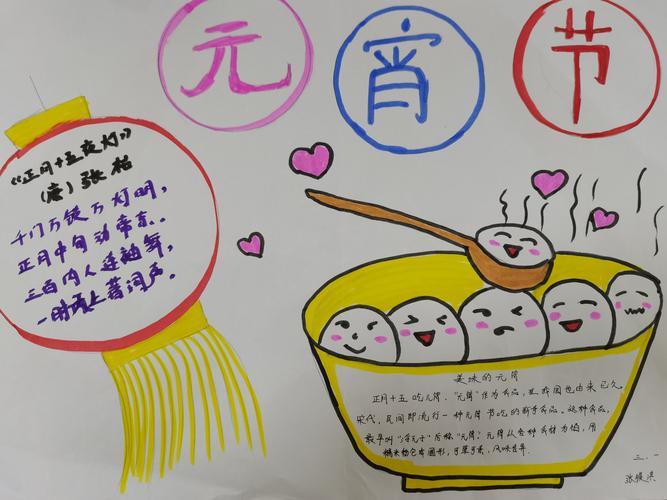 元宵节
《正月十五夜灯》
（唐）张祜
千门万锁万灯明，
正月中旬动帝京。
三百内人连袖舞，
一时天上著词声。
美味的元宵
正月十五吃元宵，"元宵"作为食品，在我国也由来已久。
宋代，民间即流行一种元宵节吃的新奇食品。这种食品，
最早叫"浮元子"后称"元宵"，元宵以各种食材为馅，用
糯米粉包成圆形，可荤可素，风味各异。
三.一